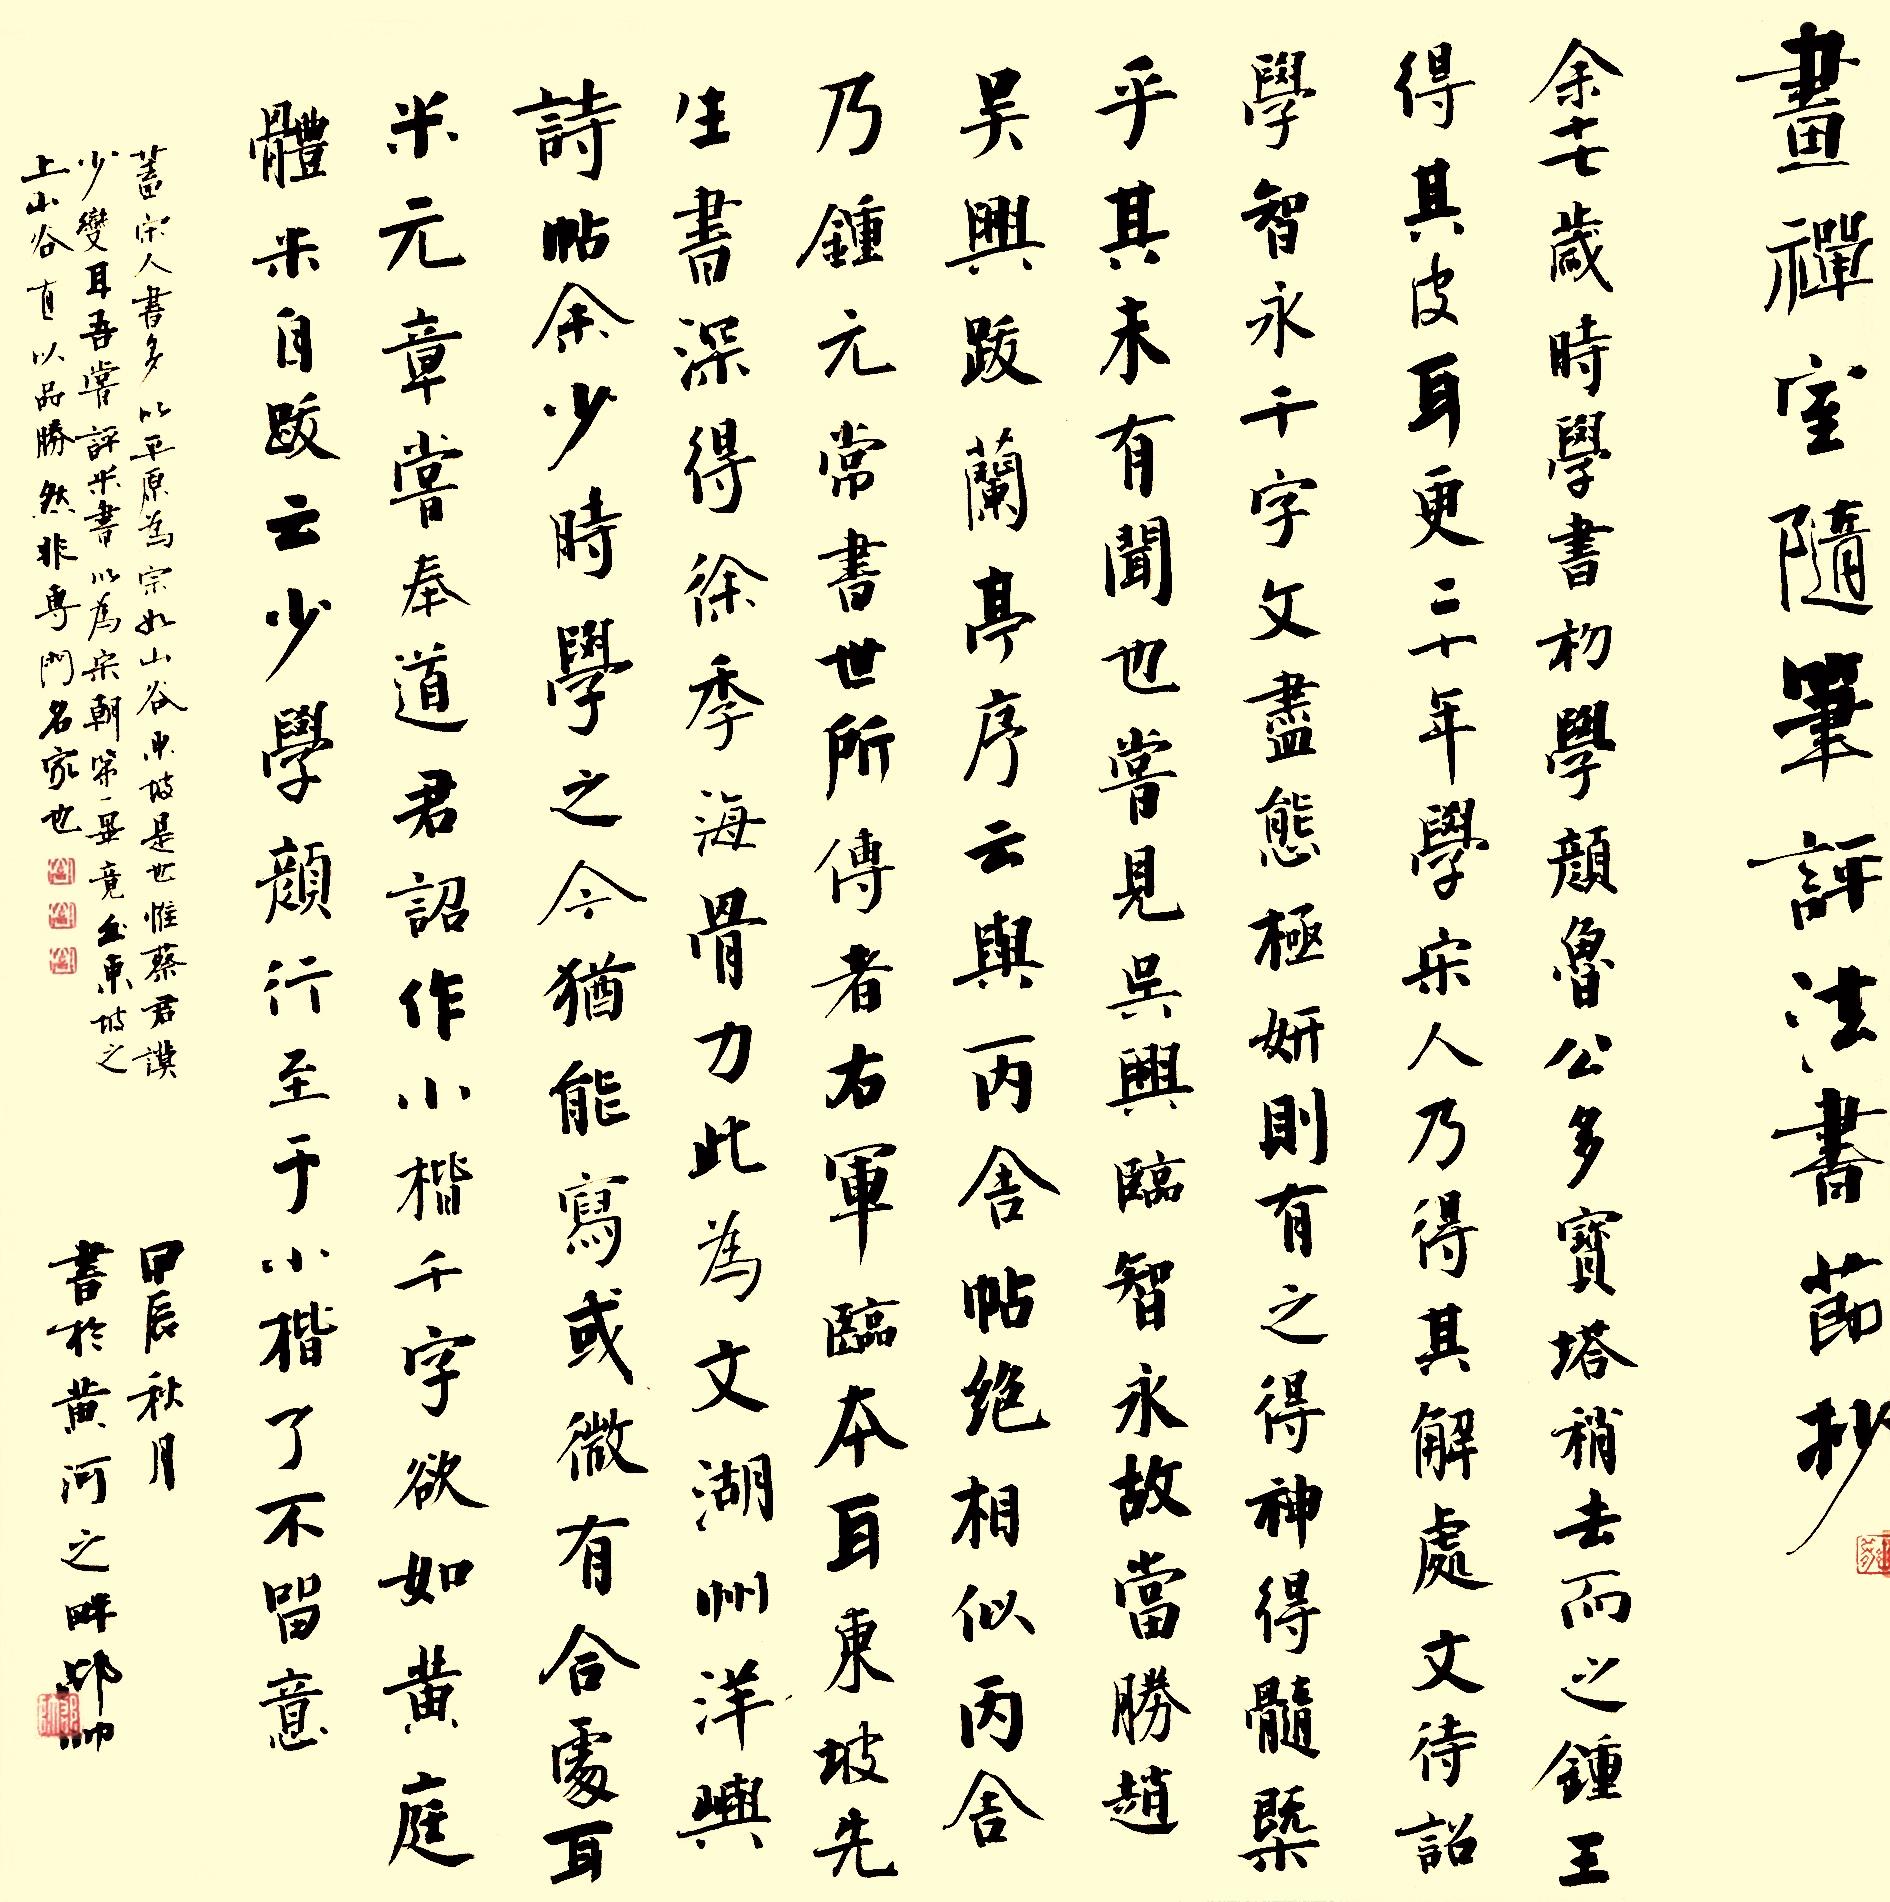 畫禪室隨筆評法書節抄
余十七歲時學書初學顔魯公多寶塔稍去而之鍾王
得其皮耳更二十年學宋人乃得其解處文待詔
學智永千字文盡態極妍則有之得神得髓槩
乎其未有聞也嘗見吳興臨智永故當勝趙
吴興跋蘭亭序云與丙舍帖绝相似丙舍
乃鍾元常書世所傳者右軍臨本耳東坡先
生書深得徐季海骨力此為文湖州洋嶼
詩帖余少時學之今猶能寫或微有合處耳
米元章嘗奉道君詔作小楷千字欲如黄庭
體米自跋云少學顔行至于小楷了不留意
蓋宋人書多以平原為宗如山谷東坡是也惟蔡君謨
少變耳吾嘗評米書以為宋朝第一畢竟出東坡之
上山谷直以品勝然非專門名家也
甲辰秋月
書於黄河之畔